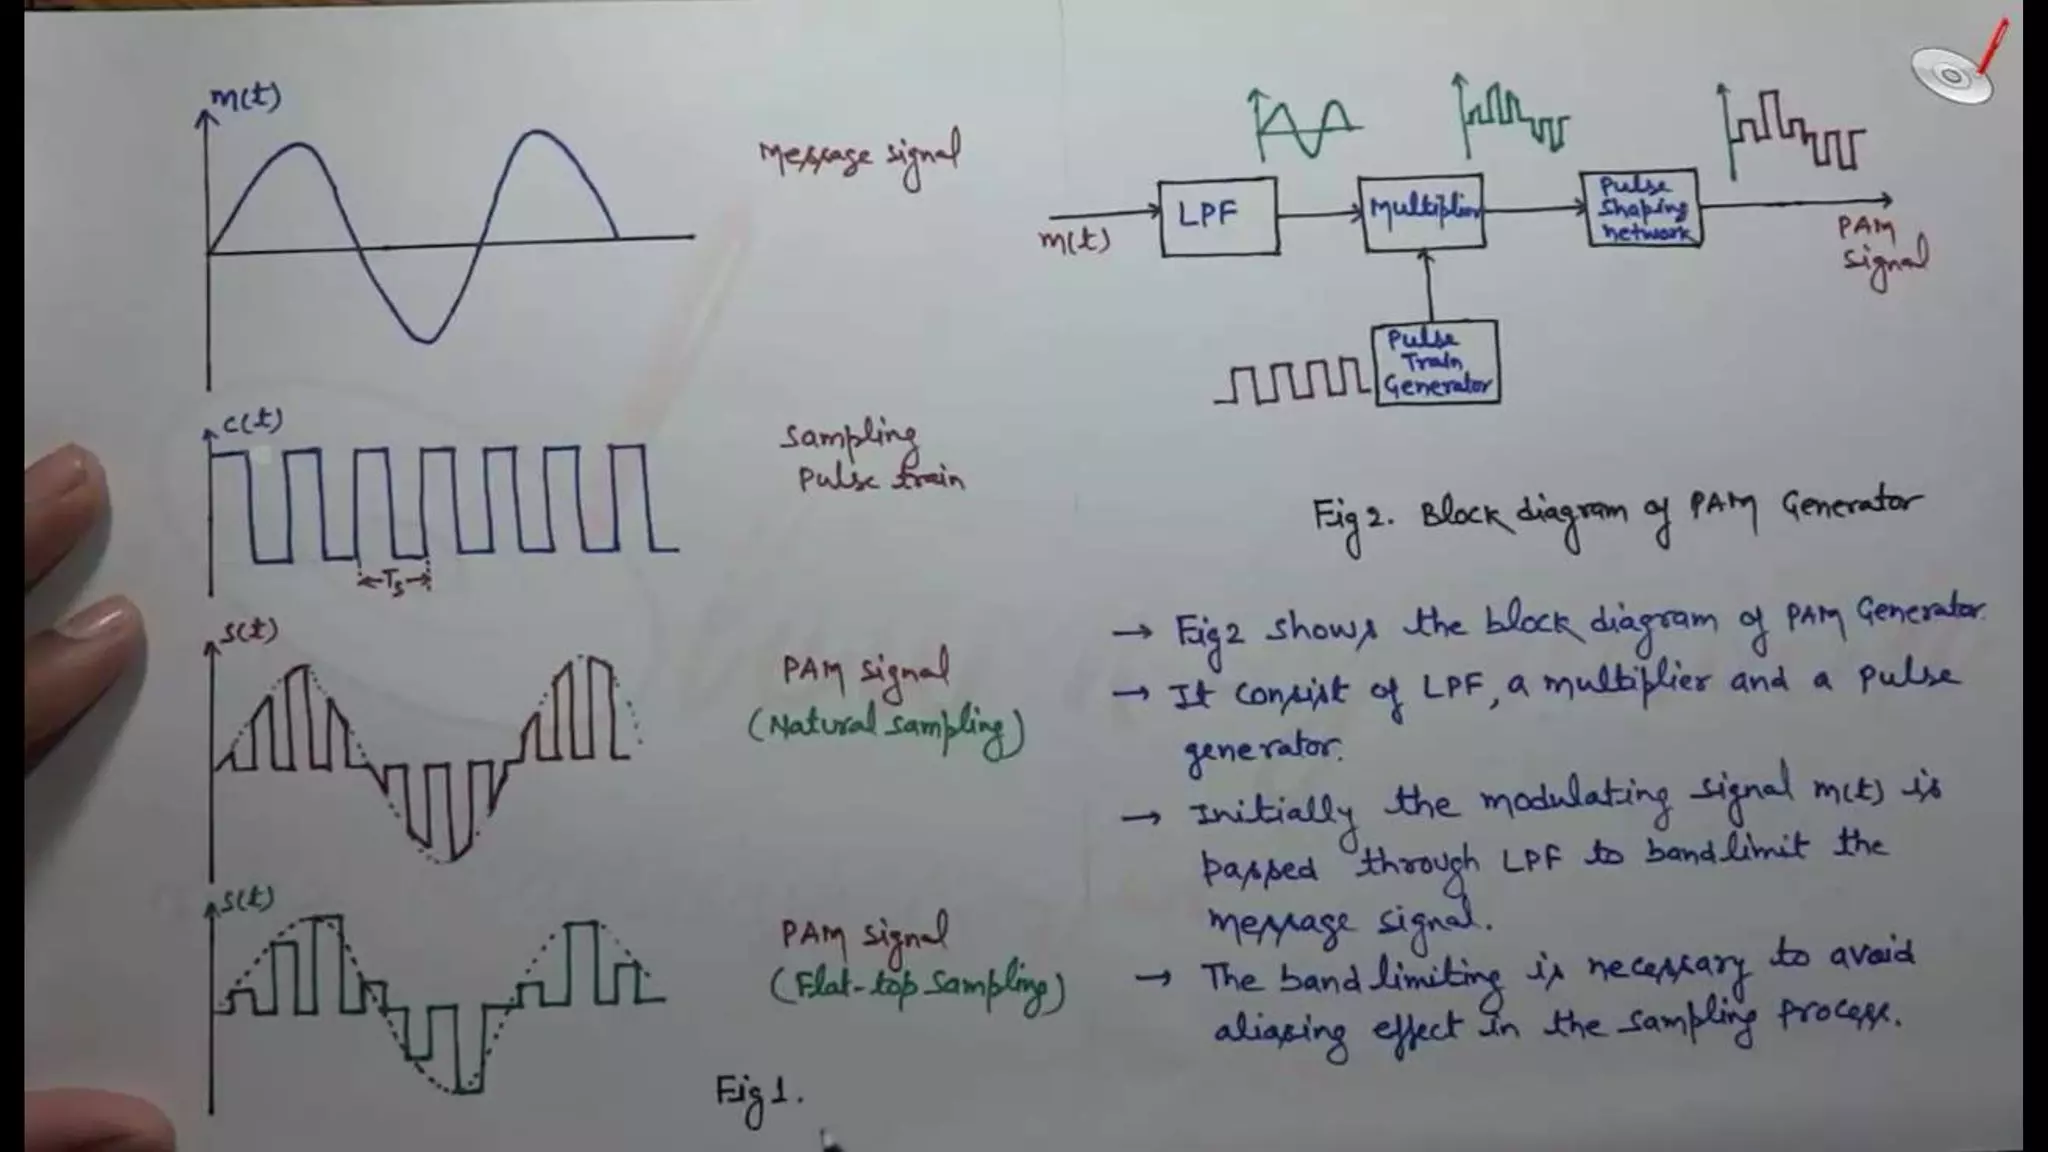 m(t)
Message signal
c(t)
Sampling
Pulse train
Ts
s(t)
PAM signal
(Natural sampling)
s(t)
PAM signal
(Flat-top sampling)
Fig 1.
m(t)
LPF
Multiplier
Pulse
Shaping
network
PAM
signal
Pulse
Train
Generator
Fig 2. Block diagram of PAM Generator
→ Fig 2 shows the block diagram of PAM Generator.
→ It consist of LPF, a multiplier and a pulse
generator.
→ Initially the modulating signal m(t) is
passed through LPF to bandlimit the
message signal.
→ The band limiting is necessary to avoid
aliasing effect in the sampling process.